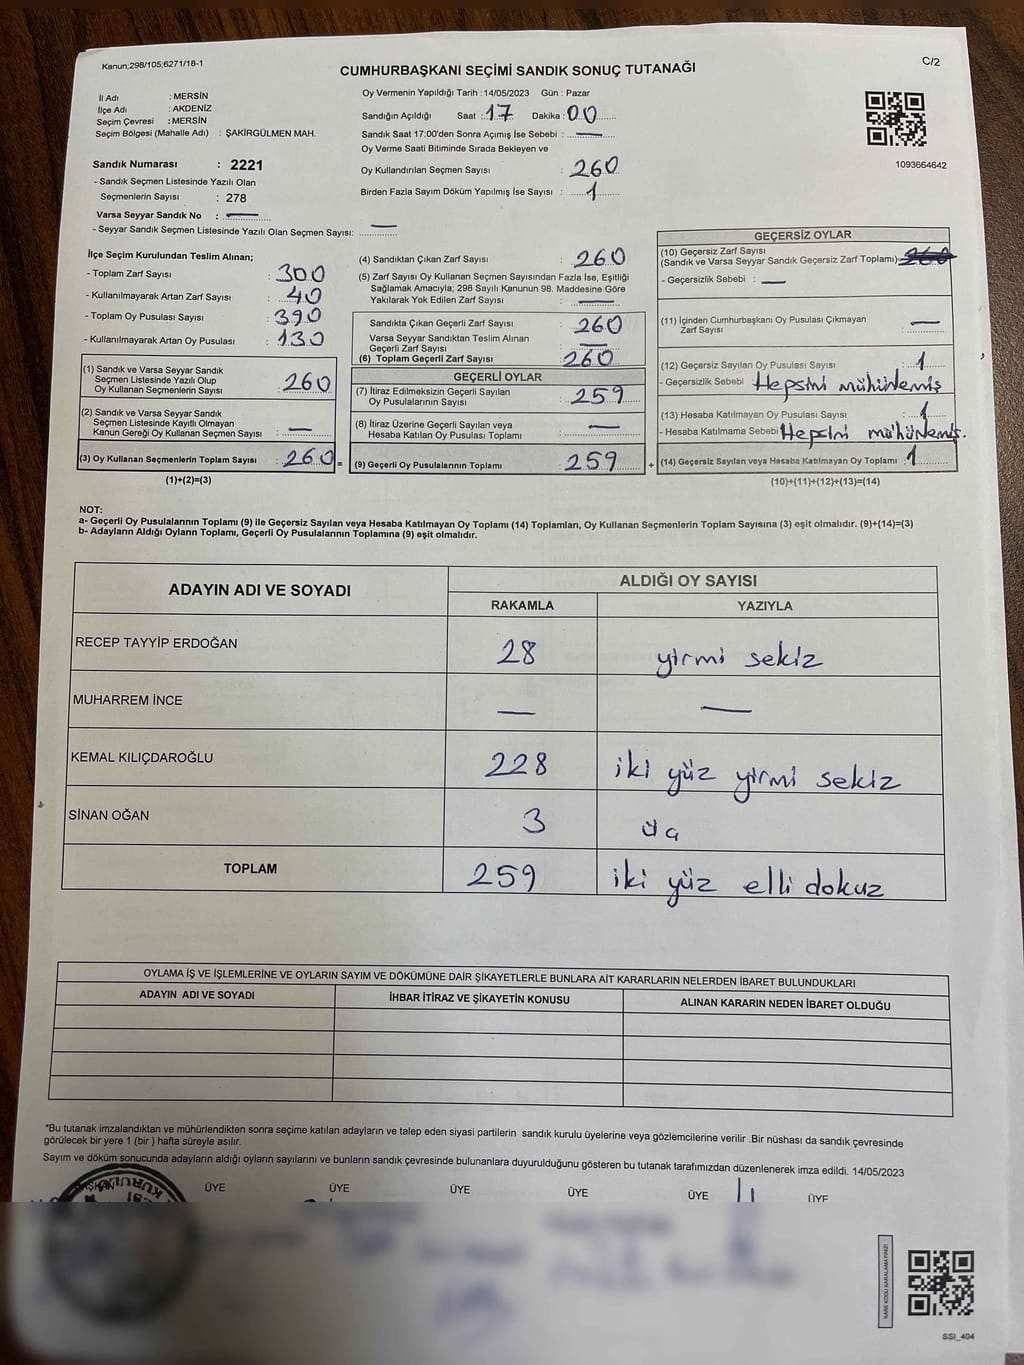 Kanun;298/105;6271/18-1
CUMHURBAŞKANI SEÇİMİ SANDIK SONUÇ TUTANAĞI
C/2
İl Adı : MERSİN
İlçe Adı : AKDENİZ
Seçim Çevresi : MERSİN
Seçim Bölgesi (Mahalle Adı) : ŞAKİRGÜLMEN MAH.
Sandık Numarası : 2221
- Sandık Seçmen Listesinde Yazılı Olan
Seçmenlerin Sayısı : 278
Varsa Seyyar Sandık No : —
- Seyyar Sandık Seçmen Listesinde Yazılı Olan Seçmen Sayısı: —
Oy Vermenin Yapıldığı Tarih :14/05/2023 Gün : Pazar
Sandığın Açıldığı Saat : 17 Dakika : 00
Sandık Saat 17:00'den Sonra Açımış İse Sebebi : —
Oy Verme Saati Bitiminde Sırada Bekleyen ve
Oy Kullandırılan Seçmen Sayısı : 260
Birden Fazla Sayım Döküm Yapılmış İse Sayısı : 1
1093664642
İlçe Seçim Kurulundan Teslim Alınan;
- Toplam Zarf Sayısı : 300
- Kullanılmayarak Artan Zarf Sayısı : 40
- Toplam Oy Pusulası Sayısı : 390
- Kullanılmayarak Artan Oy Pusulası : 130
(1) Sandık ve Varsa Seyyar Sandık
Seçmen Listesinde Yazılı Olup
Oy Kullanan Seçmenlerin Sayısı : 260
(2) Sandık ve Varsa Seyyar Sandık
Seçmen Listesinde Kayıtlı Olmayan
Kanun Gereği Oy Kullanan Seçmen Sayısı : —
(3) Oy Kullanan Seçmenlerin Toplam Sayısı : 260 =
(1)+(2)=(3)
(4) Sandıktan Çıkan Zarf Sayısı : 260
(5) Zarf Sayısı Oy Kullanan Seçmen Sayısından Fazla İse, Eşitliği
Sağlamak Amacıyla; 298 Sayılı Kanunun 98. Maddesine Göre
Yakılarak Yok Edilen Zarf Sayısı : —
Sandıkta Çıkan Geçerli Zarf Sayısı : 260
Varsa Seyyar Sandıktan Teslim Alınan
Geçerli Zarf Sayısı : —
(6) Toplam Geçerli Zarf Sayısı : 260
GEÇERLİ OYLAR
(7) İtiraz Edilmeksizin Geçerli Sayılan
Oy Pusulalarının Sayısı : 259
(8) İtiraz Üzerine Geçerli Sayılan veya
Hesaba Katılan Oy Pusulası Toplamı : —
(9) Geçerli Oy Pusulalarının Toplamı : 259 +
GEÇERSİZ OYLAR
(10) Geçersiz Zarf Sayısı
(Sandık ve Varsa Seyyar Sandık Geçersiz Zarf Toplamı) : 260
- Geçersizlik Sebebi : —
(11) İçinden Cumhurbaşkanı Oy Pusulası Çıkmayan
Zarf Sayısı : —
(12) Geçersiz Sayılan Oy Pusulası Sayısı : 1
- Geçersizlik Sebebi : Hepsini mühürlemiş
(13) Hesaba Katılmayan Oy Pusulası Sayısı : 1
- Hesaba Katılmama Sebebi : Hepsini mühürlemiş.
(14) Geçersiz Sayılan veya Hesaba Katılmayan Oy Toplamı : 1
(10)+(11)+(12)+(13)=(14)
NOT:
a- Geçerli Oy Pusulalarının Toplamı (9) ile Geçersiz Sayılan veya Hesaba Katılmayan Oy Toplamı (14) Toplamları, Oy Kullanan Seçmenlerin Toplam Sayısına (3) eşit olmalıdır. (9)+(14)=(3)
b- Adayların Aldığı Oyların Toplamı, Geçerli Oy Pusulalarının Toplamına (9) eşit olmalıdır.
ADAYIN ADI VE SOYADI
ALDIĞI OY SAYISI
RAKAMLA YAZIYLA
RECEP TAYYİP ERDOĞAN 28 yirmi sekiz
MUHARREM İNCE — —
KEMAL KILIÇDAROĞLU 228 iki yüz yirmi sekiz
SİNAN OĞAN 3 üç
TOPLAM 259 iki yüz elli dokuz
OYLAMA İŞ VE İŞLEMLERİNE VE OYLARIN SAYIM VE DÖKÜMÜNE DAİR ŞİKAYETLERLE BUNLARA AİT KARARLARIN NELERDEN İBARET BULUNDUKLARI
ADAYIN ADI VE SOYADI İHBAR İTİRAZ VE ŞİKAYETİN KONUSU ALINAN KARARIN NEDEN İBARET OLDUĞU
*Bu tutanak imzalandıktan ve mühürlendikten sonra seçime katılan adayların ve talep eden siyasi partilerin sandık kurulu üyelerine veya gözlemcilerine verilir .Bir nüshası da sandık çevresinde
görülecek bir yere 1 (bir ) hafta süreyle asılır.
Sayım ve döküm sonucunda adayların aldığı oyların sayılarını ve bunların sandık çevresinde bulunanlara duyurulduğunu gösteren bu tutanak tarafımızdan düzenlenerek imza edildi. 14/05/2023
BAŞKAN ÜYE ÜYE ÜYE ÜYE ÜYE ÜYE
KARE KODU KARALAMAYINIZ!
SSI_404